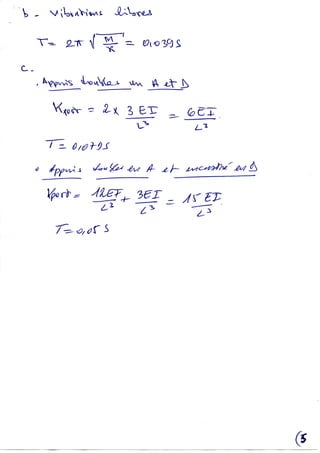 b - Vibrations libres
T = 2π √M/K = 0,039 S
C -
. Appuis doubles en A et D
Kport = 2 x 3EI/L³ = 6EI/L³
T = 0,079 S
• Appuis double en A et encastré en D
Kport = 12EI/L³ + 3EI/L³ = 15 EI/L³
T = 0,05 S
5